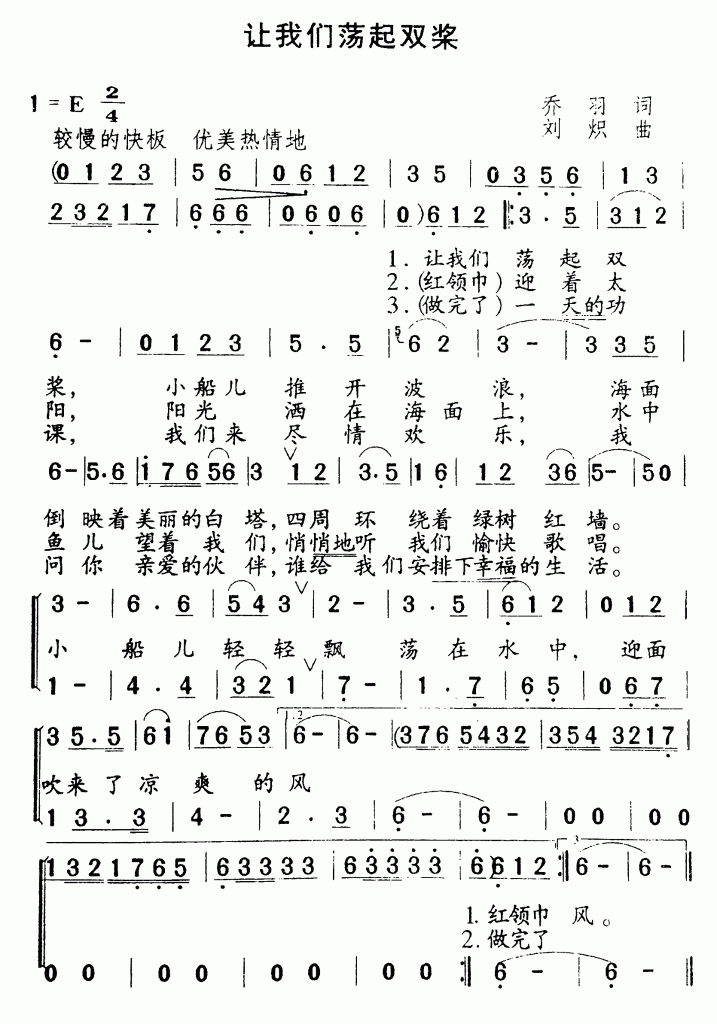 让我们荡起双桨
1 = E 2/4
乔羽 词
刘炽 曲
较慢的快板 优美热情地
(0 1 2 3 | 5 6 | 0 6 1 2 | 3 5 | 0 3 5 6 | 1 3 |
2 3 2 1 7 | 6 6 6 | 0 6 0 6 | 0 ) 6 1 2 |: 3 . 5 | 3 1 2 |
1. 让我们 荡 起 双
2. (红领巾) 迎 着 太
3. (做完了) 一 天的功
6 - | 0 1 2 3 | 5 . 5 | 5 6 2 | 3 - | 3 3 5 |
桨, 小船儿 推 开 波 浪, 海面
阳, 阳光 洒 在 海 面 上, 水中
课, 我们来 尽 情 欢 乐, 我
6 - | 5 . 6 | i 7 6 5 6 | 3 ∨ 1 2 | 3 . 5 | 1 6 | 1 2 3 6 | 5 - | 5 0 |
倒 映着美丽的白 塔, 四周 环 绕着 绿树 红 墙。
鱼 儿 望着 我 们, 悄悄地听 我们 愉快 歌 唱。
问 你 亲爱的伙 伴, 谁给 我 们安排下幸福的生 活。
3 - | 6 . 6 | 5 4 3 ∨ | 2 - | 3 . 5 | 6 1 2 | 0 1 2 |
小 船 儿 轻 轻 飘 荡 在 水 中, 迎面
1 - | 4 . 4 | 3 2 1 ∨ | 7 - | 1 . 7 | 6 5 | 0 6 7 |
3 5 . 5 | 6 i | 7 6 5 3 | 1.2 6 - | 6 - | (3 7 6 5 4 3 2 | 3 5 4 3 2 1 7 |
吹来了凉 爽 的风
1 3 . 3 | 4 - | 2 . 3 | 6 - | 6 - | 0 0 | 0 0 |
1 3 2 1 7 6 5 | 6 3 3 3 3 | 6 3 3 3 3 3 3 | 6 ) 6 1 2 :| 3 6 - | 6 - ||
1. 红领巾 风。
2. 做完了
0 0 | 0 0 | 0 0 | 0 0 :| 6 - | 6 - ||